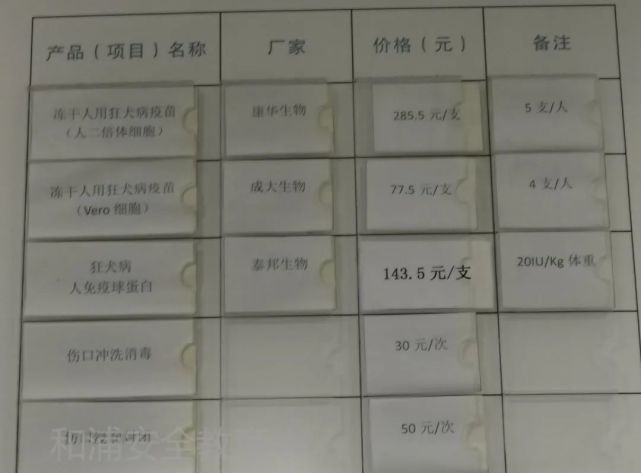 产品（项目）名称 厂家 价格（元） 备注
冻干人用狂犬病疫苗
（人二倍体细胞） 康华生物 285.5 元/支 5 支/人
冻干人用狂犬病疫苗
（Vero 细胞） 成大生物 77.5 元/支 4 支/人
狂犬病
人免疫球蛋白 泰邦生物 143.5 元/支 20IU/Kg 体重
伤口冲洗消毒 30 元/次
50 元/次
和浦安全教